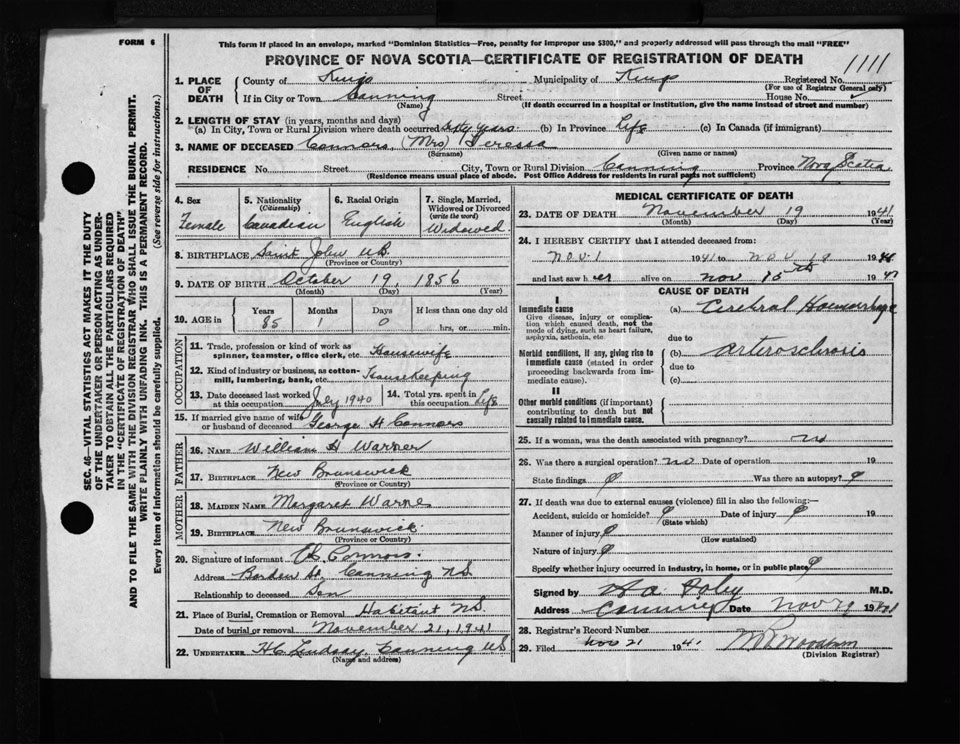 FORM 6
This form if placed in an envelope, marked "Dominion Statistics—Free, penalty for improper use $300," and properly addressed will pass through the mail "FREE"
PROVINCE OF NOVA SCOTIA—CERTIFICATE OF REGISTRATION OF DEATH
1111
1. PLACE OF DEATH County of Kings Municipality of Kings Registered No.
(For use of Registrar General only)
If in City or Town Canning Street House No.
(Name) (If death occurred in a hospital or institution, give the name instead of street and number)
2. LENGTH OF STAY (in years, months and days)
(a) In City, Town or Rural Division where death occurred Sixty years. (b) In Province Life (c) In Canada (if immigrant)
3. NAME OF DECEASED Connors (Mrs) Teressa
(Surname) (Given name or names)
RESIDENCE No. Street City, Town or Rural Division Canning Province Nova Scotia
(Residence means usual place of abode. Post Office Address for residents in rural parts not sufficient)
4. Sex Female
5. Nationality (Citizenship) Canadian
6. Racial Origin English
7. Single, Married, Widowed or Divorced (write the word) Widowed
8. BIRTHPLACE Saint John N B
(Province or Country)
9. DATE OF BIRTH October 19, 1856
(Month) (Day) (Year)
10. AGE in Years 85 Months 1 Days 0 If less than one day old hrs. or min.
OCCUPATION
11. Trade, profession or kind of work as spinner, teamster, office clerk, etc. Housewife
12. Kind of industry or business, as cotton-mill, lumbering, bank, etc. Housekeeping
13. Date deceased last worked at this occupation July 1940
14. Total yrs. spent in this occupation Life
15. If married give name of wife or husband of deceased George H Connors
FATHER
16. NAME William H Warner
17. BIRTHPLACE New Brunswick
(Province or Country)
MOTHER
18. MAIDEN NAME Margaret Warne
19. BIRTHPLACE New Brunswick
(Province or Country)
20. Signature of informant Connors
Address Borden St, Canning N.S
Relationship to deceased Son
21. Place of Burial, Cremation or Removal Habitant N.S.
Date of burial or removal November 21, 1941
22. UNDERTAKER H C Lindsay, Canning N S
(Name and address)
MEDICAL CERTIFICATE OF DEATH
23. DATE OF DEATH November 19 1941
(Month) (Day) (Year)
24. I HEREBY CERTIFY that I attended deceased from:
Nov 1 1941 to Nov 18 1941
and last saw her alive on Nov 15th 1941
CAUSE OF DEATH
I
Immediate cause
Give disease, injury or complication which caused death, not the mode of dying, such as heart failure, asphyxia, asthenia, etc.
(a) Cerebral Haemorrhage
due to
Morbid conditions, if any, giving rise to immediate cause (stated in order proceeding backwards from immediate cause).
(b) Arterosclrosis
due to
(c)
II
Other morbid conditions (if important) contributing to death but not causally related to immediate cause.
25. If a woman, was the death associated with pregnancy? no
26. Was there a surgical operation? no Date of operation 19
State findings Was there an autopsy?
27. If death was due to external causes (violence) fill in also the following:—
Accident, suicide or homicide? Date of injury 19
(State which)
Manner of injury
(How sustained)
Nature of injury
Specify whether injury occurred in industry, in home, or in public place
Signed by M.D.
Address Canning Date Nov 19 1941
28. Registrar's Record Number
29. Filed Nov 21 1941
(Division Registrar)
SEC. 46—VITAL STATISTICS ACT MAKES IT THE DUTY OF THE UNDERTAKER OR PERSON ACTING AS UNDERTAKER TO OBTAIN ALL THE PARTICULARS REQUIRED IN THE "CERTIFICATE OF REGISTRATION OF DEATH"
AND TO FILE THE SAME WITH THE DIVISION REGISTRAR WHO SHALL ISSUE THE BURIAL PERMIT.
WRITE PLAINLY WITH UNFADING INK. THIS IS A PERMANENT RECORD.
Every item of information should be carefully supplied. (See reverse side for instructions.)